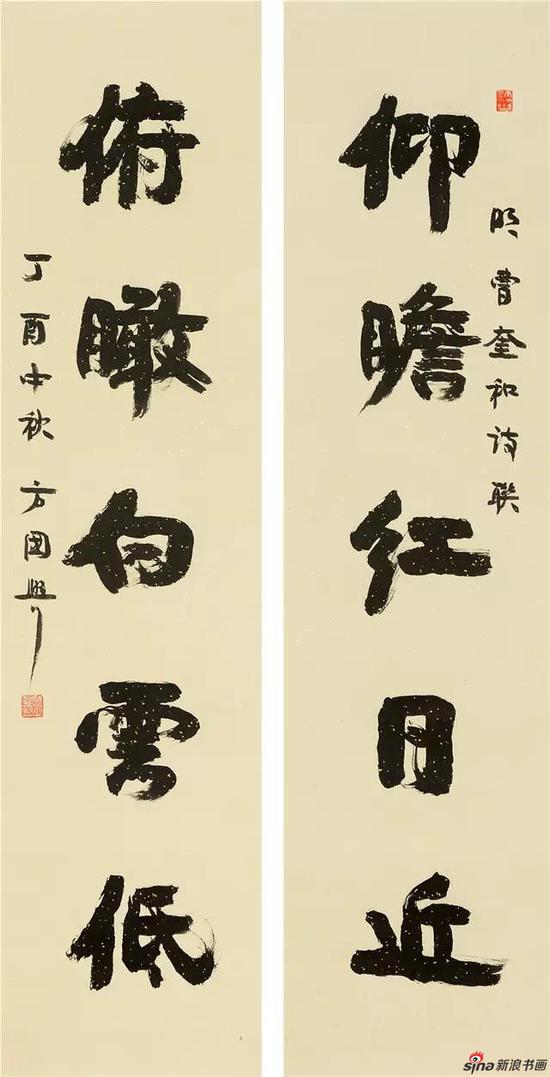 仰瞻红日近
明曹奎和诗联
俯瞰白雲低
丁酉中秋 方国兴
sina新浪书画